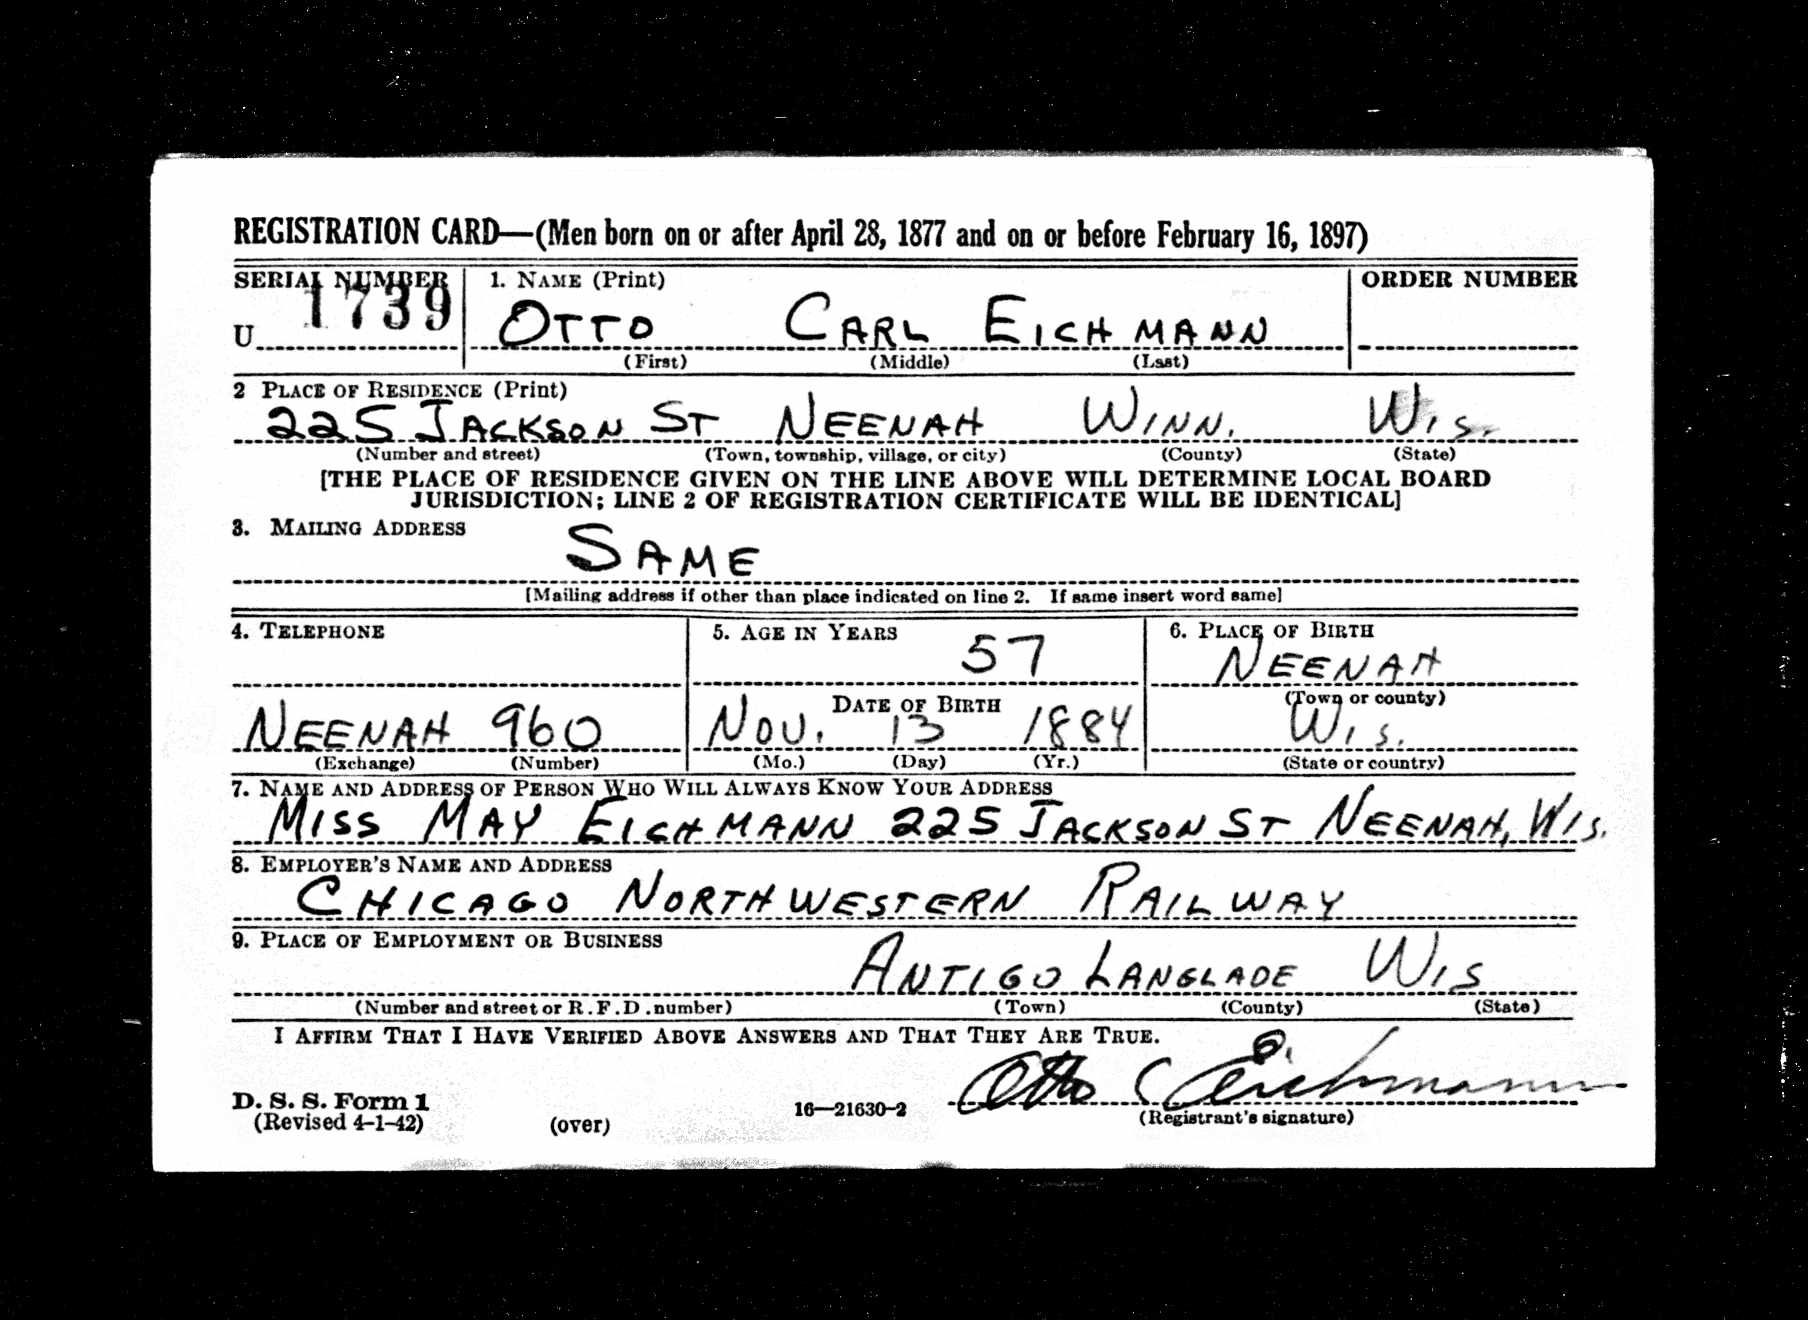 REGISTRATION CARD—(Men born on or after April 28, 1877 and on or before February 16, 1897)
SERIAL NUMBER 1. NAME (Print) ORDER NUMBER
U 1739 OTTO CARL EICHMANN
(First) (Middle) (Last)
2 PLACE OF RESIDENCE (Print)
225 JACKSON ST NEENAH WINN. WIS.
(Number and street) (Town, township, village, or city) (County) (State)
[THE PLACE OF RESIDENCE GIVEN ON THE LINE ABOVE WILL DETERMINE LOCAL BOARD
JURISDICTION; LINE 2 OF REGISTRATION CERTIFICATE WILL BE IDENTICAL]
3. MAILING ADDRESS
SAME
[Mailing address if other than place indicated on line 2. If same insert word same]
4. TELEPHONE 5. AGE IN YEARS 6. PLACE OF BIRTH
57 NEENAH
DATE OF BIRTH (Town or county)
NEENAH 960 NOV. 13 1884 WIS.
(Exchange) (Number) (Mo.) (Day) (Yr.) (State or country)
7. NAME AND ADDRESS OF PERSON WHO WILL ALWAYS KNOW YOUR ADDRESS
MISS MAY EICHMANN 225 JACKSON ST NEENAH, WIS.
8. EMPLOYER'S NAME AND ADDRESS
CHICAGO NORTHWESTERN RAILWAY
9. PLACE OF EMPLOYMENT OR BUSINESS
ANTIGO LANGLADE WIS
(Number and street or R.F.D. number) (Town) (County) (State)
I AFFIRM THAT I HAVE VERIFIED ABOVE ANSWERS AND THAT THEY ARE TRUE.
Otto C Eichmann
D. S. S. Form 1 16—21630-2 (Registrant's signature)
(Revised 4-1-42) (over)